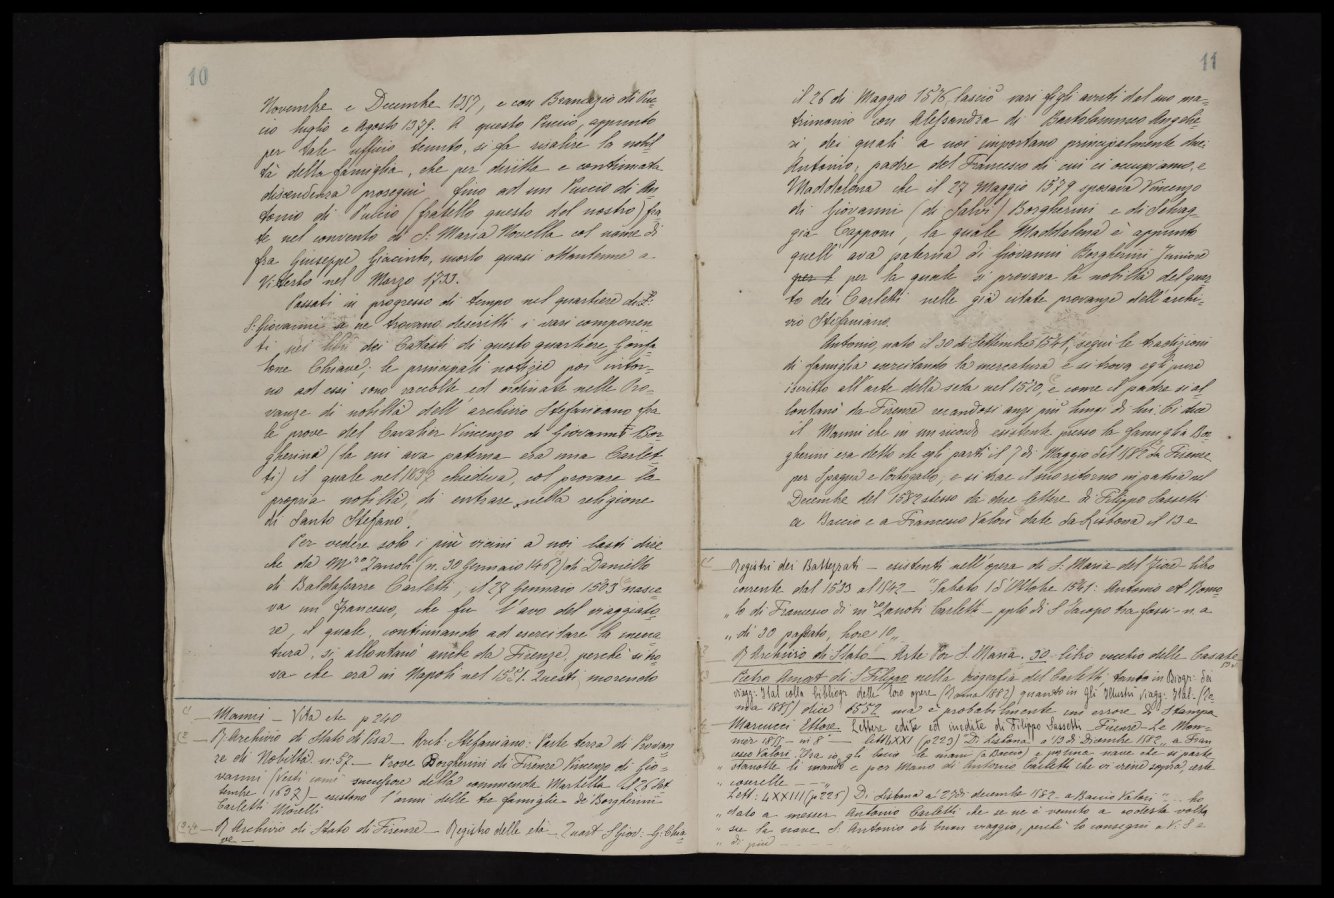 10
Novembre e Decembre 1357, e con Brancazio di Puc-
cio luglio e Agosto 1379. A questo Puccio, appunto
per tale ufficio tenuto, si fa risalire la nobil-
tà della famiglia, che per diritta e continuata
discendenza proseguì fino ad un Puccio di An-
tonio di Puccio (fratello questo del nostro) fra-
te nel convento di S. Maria Novella col nome di
fra Giuseppe Giacinto, morto quasi ottantenne a
Viterbo nel Marzo 1733.
Passati in progresso di tempo nel quartiere di
S. Giovanni se ne trovano descritti i vari componen
ti nei libri dei Catasti di questo quartiere Gonfa-
lone Chiave; le principali notizie poi intor-
no ad essi sono raccolte ed ordinate nelle Pro-
vanze di nobiltà dell'archivio Stefaniano fra
le prove del Cavalier Vincenzo di Giovanni Bor-
gherini (la cui ava paterna era una Carlet-
ti) il quale nel 1632 chiedeva, col provare la
propria nobiltà, di entrare nella religione
di Santo Stefano.
Per vedere solo i più vicini a noi basti dire
che da Mro Zanobi (n. 30 Gennaio 1467) di Daniello
di Baldassarre Carletti, il 27 Gennaio 1503 nasce-
va un Francesco, che fu l'avo del viaggiato-
re, il quale, continuando ad esercitare la merca
tura, si allontanò anche da Firenze, perchè si tro-
va che era in Napoli nel 1551. Questi, morendo
(1 — Manni — Vita etc p 240
(2 — R. Archivio di Stato di Pisa — Arch: Stefaniano: Parte terza di Provan-
ze di Nobiltà n: 52 — Prove Borgherini di Firenze Vincenzo di Gio-
vanni (Vestì come successore della commenda Martella il 26 Set
tembre 1632) — esistono l'armi delle tre famiglie de Borgherini
Carletti Morelli
(3-4 — R Archivio di Stato di Firenze — Registro delle età — Quart S Giov: G: Chia
ve —
11
il 26 di Maggio 1576, lasciò vari figli avuti dal suo ma-
trimonio con Alessandra di Bartolommeo Ungher
i, dei quali a noi importano principalmente due:
Antonio, padre del Francesco di cui ci occupiamo, e
Maddalena che il 27 Maggio 1579 sposava Vincenzo
di Giovanni (di Salvi) Borgherini e di Selvag-
gia Capponi, la quale Maddalena è appunto
quell'ava paterna di Giovanni Borgherini Juniore
per l per la quale si provava la nobiltà del quar
to dei Carletti nelle già citate provanze dell'archi-
vio Stefaniano.
Antonio, nato il 30 di Settembre 1541, seguì le tradizioni
di famiglia esercitando la mercatura e si trova egli pure
iscritto all'arte della seta nel 1570, e come il padre si al
lontanò da Firenze recandosi anzi più lungi di lui. Ci dice
il Manni che in un ricordo esistente presso la famiglia Bor
gherini era detto che egli partì il 7 di Maggio del 1582 da Firenze
per Spagna e Portogallo, e si trae il suo ritorno in patria nel
Decembre del 1582 stesso da due lettere di Filippo Sassetti
a Baccio e a Francesco Valori date da Lisbona il 13 e
(1 — Registri dei Battezzati — esistenti nell'opera di S. Maria del Fiore — libro
corrente dal 1533 al 1542 — "Sabato 1 d'Ottobre 1541: Antonio et Romo
" lo di Francesco di m ro Zanobi Carletti — pplo di S Jacopo tra fossi — n. a
" di 30 passato, hore 10 "
2 — R Archivio di Stato — Arte Por S. Maria. 30 — libro vecchio delle Casate
3 — Pietro Amat di S Filippo nella biografia del Carletti, tanto in Biogr: dei
viagg: Ital colla bibliogr delle loro opere (Roma 1882) quanto in Gli Illustri Viagg: Ital. (Ro
ma 1885) dice 1552 ma è probabilmente un errore di Stampa
4 — Marcucci Ettore — Lettere edite ed inedite di Filippo Sassetti — Firenze — Le Mon-
nier 1855 — in 8° — lett LXXI (p 223) Di Lisbona a 13 di Dicembre 1582 a Fran-
cesco Valori.
" conserelle — "
Lett: LXXIII (p 225) Di Lisbona a 27 di decembre 1582 — a Baccio Valori " ho
" dato a messer Antonio Carletti che se ne è venuto a codesta volta
" su la nave S. Antonio di buon viaggio, perchè lo consegni a V. S a
" di piè - - - - - "